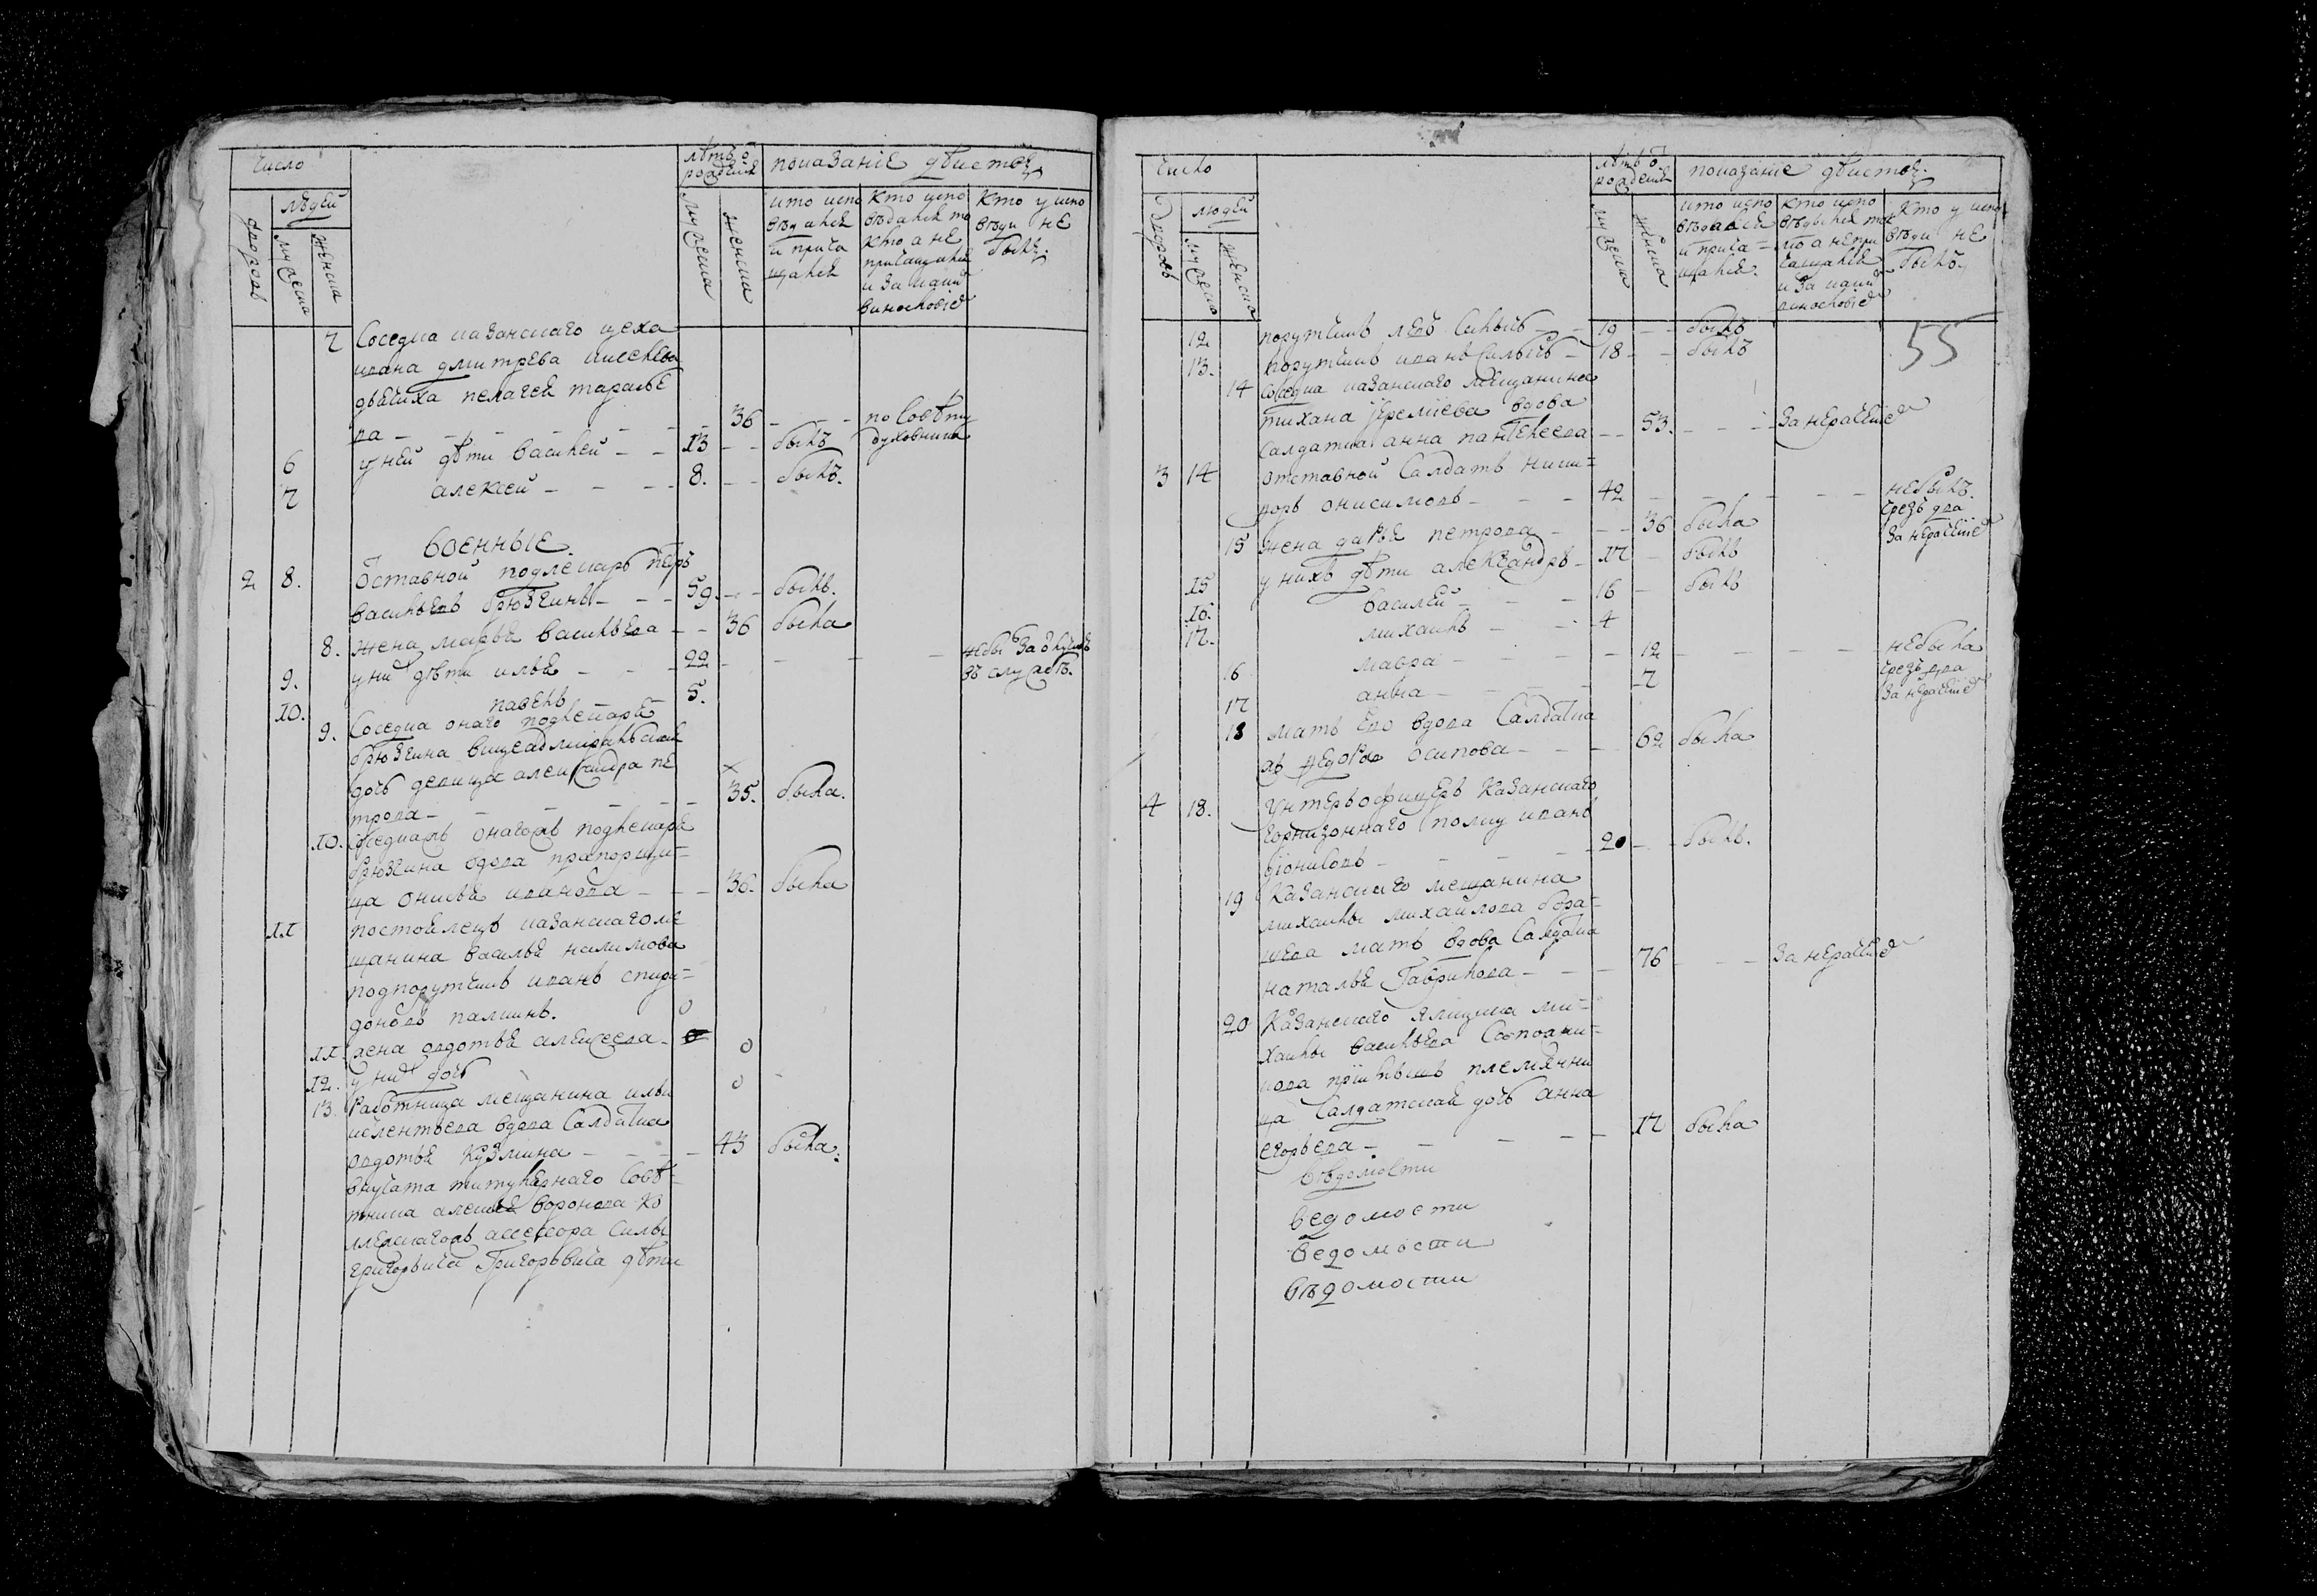 число
лѣтъ ѿ рожденiя
показанiе дѣйства
дворовъ
людей
мужеска
женска
мужеска
женска
кто испо
вѣдался
и прича
щался
кто испо
вѣдался то
кто а не
причащался
и за какой
винословiе
кто у испо
вѣди не
былъ.
7 Соседка казанскаго цеха
ивана дмитрева
пелагея
ва 36 по совѣту
духовника
6 у ней дѣти василей 13 былъ
7 алексей 8. былъ.
военныя.
2 8. Отставной подлекарь петръ
васильевъ брюзгинъ 59. былъ.
8. жена марья васильева 36 была
9. у них дѣти илья 22 небылъ
10. павелъ 5.
9. Соседка онаго подлекаря
брюзгина вицеадмиральская
дочь девица александра пе
трова 35. была.
10. соседка онагожъ подлекаря
брюзгина вдова прапорщи=
ца иванова 36. была
11 постоялецъ казанскаго ме
щанина василья налимова
подпорутчикъ иванъ спири=
доновъ палкинъ. 0
11. жена авдотья алексеева 0
12. у них дочь 0
13. Работница мещанина ильи
келентьева вдова салдатка
авдотья кузмина 43 была.
титулярнаго Совѣ=
тника алексея воронова ко
ллежскагожъ ассесора силы
григорьича Григорьвича дѣти
число
лѣтъ ѿ рожденiя
показанiе дѣйства.
дворовъ
людей
мужеска
женска
мужеска
женска
кто испо
вѣдался
и прича=
щался.
кто испо
вѣдался то
кто а непри
чащался
и за какой
винословiе
кто у испо
вѣди не
былъ.
55
12 порутчикъ левъ Силычь 19 былъ
13. порутчикъ иванъ Силычь 18 былъ
14 Соседка казанскаго мещанина
тихана Ереміева вдова
салдатка анна пантелеева 53. за нерачением
3 14 Отставной Салдатъ ники=
форъ онисимовъ 42 небылъ.
15 жена дарья петрова 36 была
15 у нихъ дѣти александръ 17 былъ
16. василей 16 былъ
17. михаилъ 4
16 мавра 12 небыла
17 анна 7
18 мать ево вдова Салдатка
осипова 62 была
4 18. Унтеръофицеръ казанскаго
гарнизоннаго полку иванъ
дiонисовъ 20 былъ.
19 Казанскаго мещанина
михаилы михайлова
мать вдова Салдатка
наталья Гаврилова 76 за нерачением
20 Казанскаго ямщика ми=
хаилы васильева
племянни
ца Салдатская дочь анна
егорьева 17 была
вѣдомости
ведомости
ведомости
вѣдомости